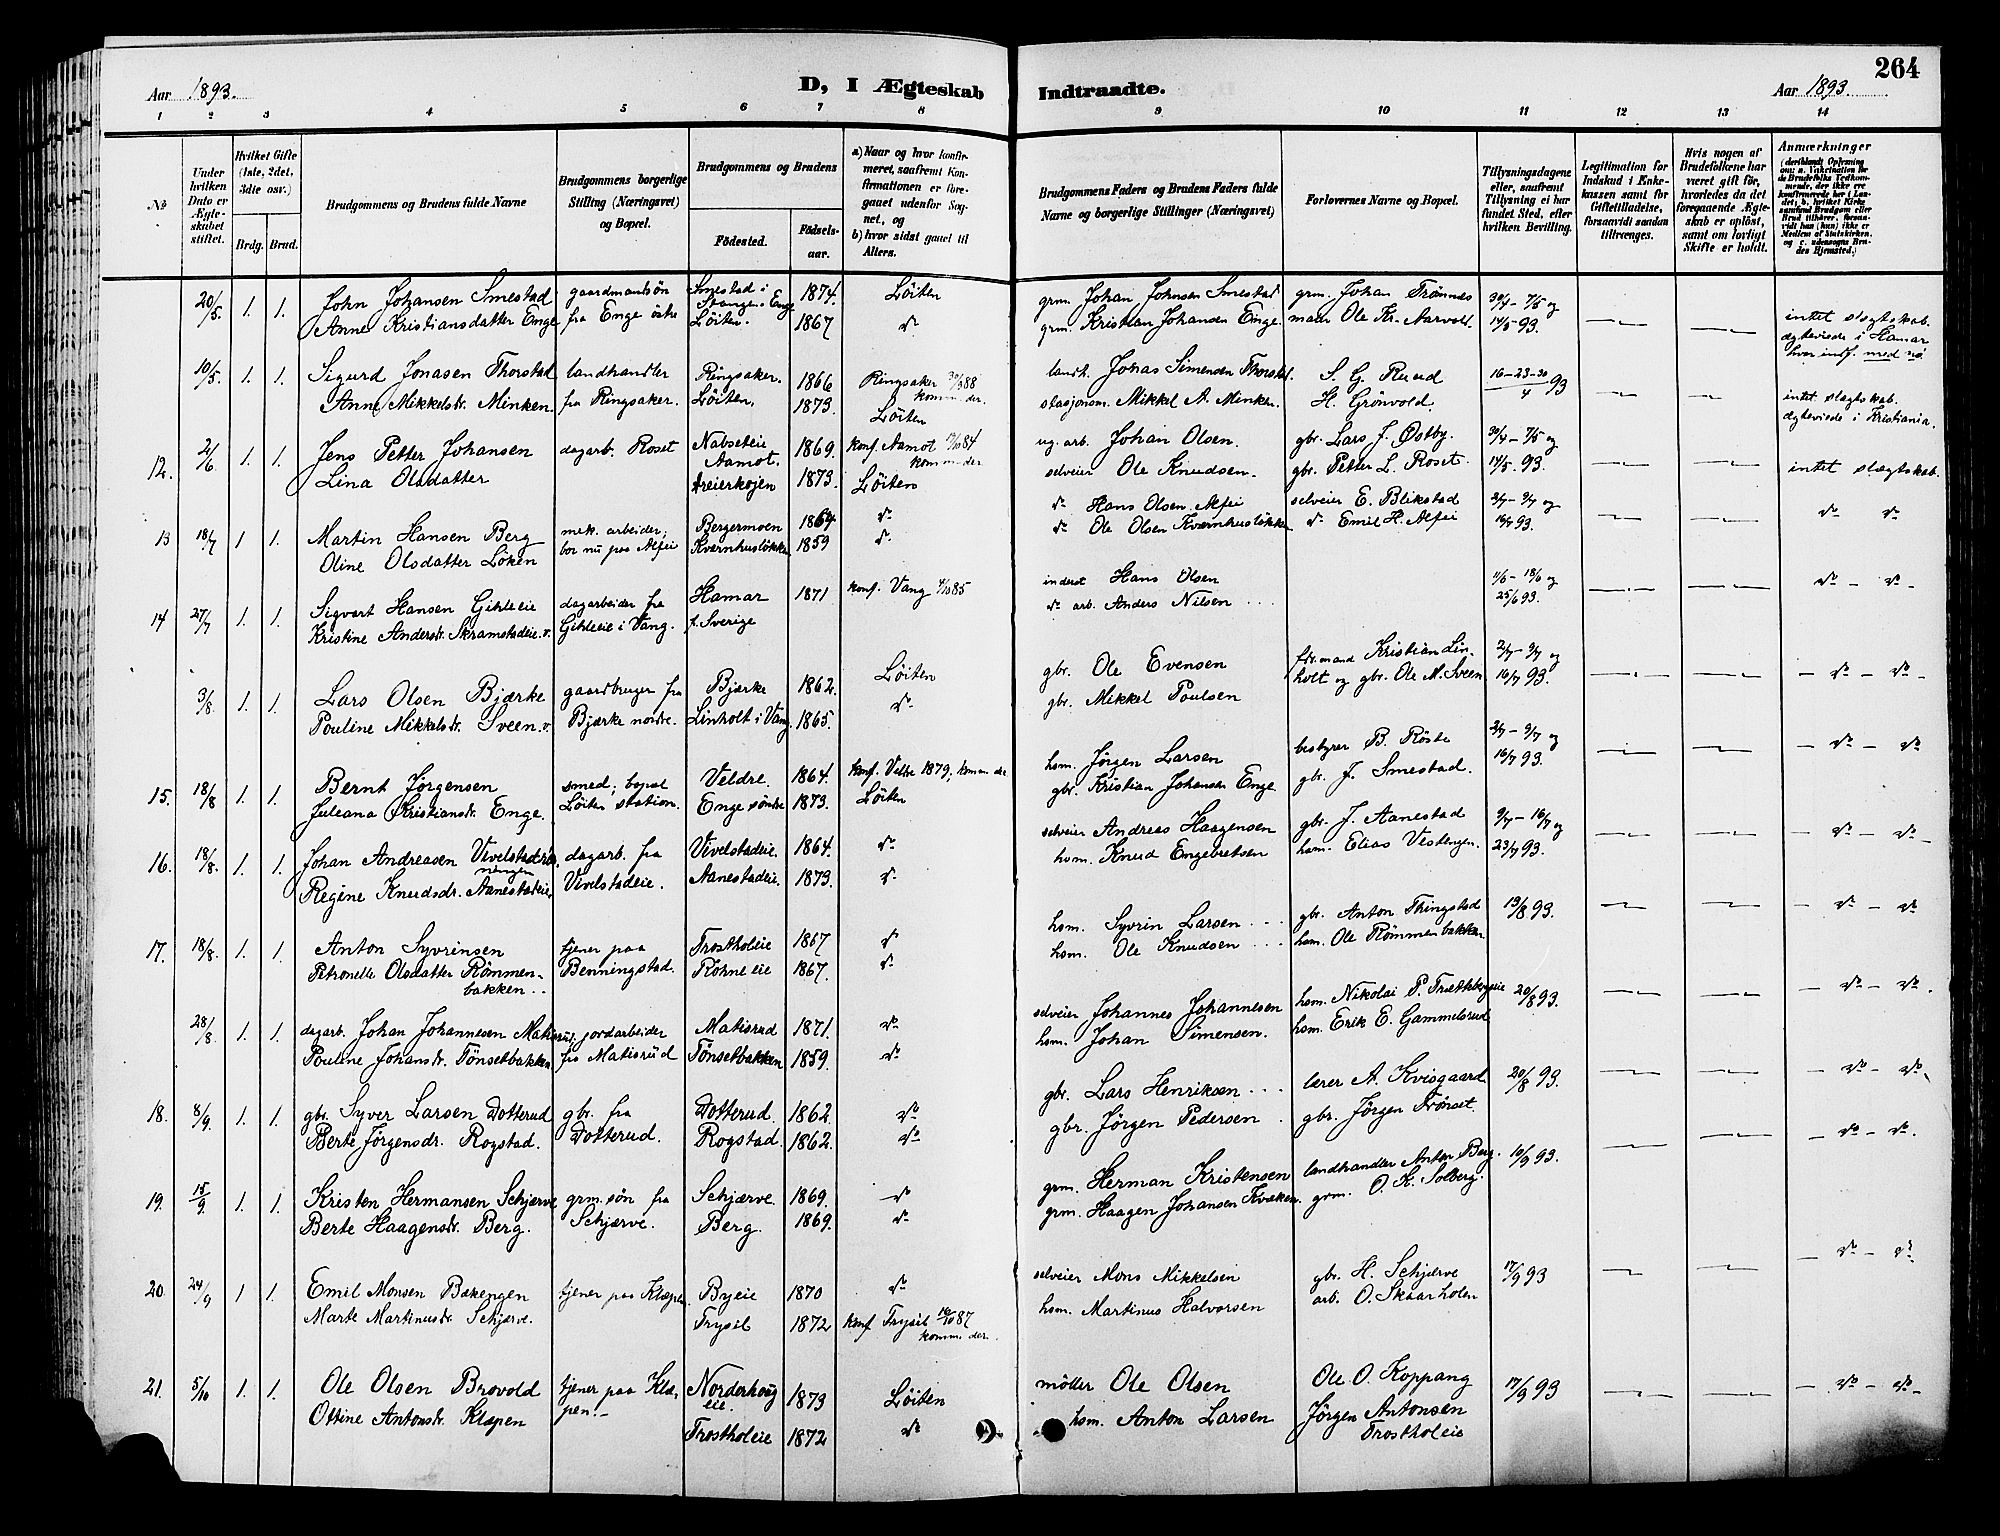 264
Aar 1893.
D, I Ægteskab Indtraadte.
Aar 1893.
1 2 3 4 5 6 7 8 9 10 11 12 13 14
No
Under hvilken Dato er Ægteskabet stiftet.
Hvilket Gifte (1ste, 2det, 3die osv.)
Brdg. Brud.
Brudgommens og Brudens fulde Navne
Brudgommens borgerlige Stilling (Næringsvei) og Bopæl.
Brudgommens og Brudens
Fødested. Fødsels-aar.
a) Naar og hvor konfirmeret, saafremt Konfirmationen er foregaaet udenfor Sognet, og
b) hvor sidst gaaet til Alters.
Brudgommens Faders og Brudens Faders fulde Navne og borgerlige Stillinger (Næringsvei)
Forlovernes Navne og Bopæl.
Tillysningsdagene eller, saafremt Tillysning ei har fundet Sted, efter hvilken Bevilling.
Legitimation for Indskud i Enkekassen samt for Giftetilladelse, forsaavidt saadan tiltrænges.
Hvis nogen af Brudefolkene har været gift før, hvorledes da det foregaaende Ægteskab er opløst, samt om lovligt Skifte er holdt.
Anmærkninger
20/5. 1. 1. John Johansen Smestad gaardmandsön Smestad i Stange i Enge 1874. Löiten grm. Johan Johnsen Smestad grm. Johan Trönnes 30/4 – 7/5 og
Anne Kristiansdatter Enge fra Enge östre Löiten. 1867 do grm. Kristian Johansen Enge. maur Ole Kr. Aarvold. 14/5 93. intet slægtskab.
10/5. 1. 1. Sigurd Jonasen Thorstad landhandler Ringsaker. 1866 Ringsaker 30/9 88 komm. der. landh. Johas Simensen Thorstad. S. G. Ruud 16–23–30/4 93 ægteviede i Hamar
Anne Mikkelsdr. Minken. fra Ringsaker. Löiten. 1873. Löiten stasjonsm. Mikkel A. Minken. H. Grönvold. intet slægtskab. ægteviede i Kristiania.
12. 2/6 1. 1. Jens Petter Johansen dagarb. Roset Nabseteie Aamot. 1869. konf. Aamot 12/10 84 komm. der ug. arb. Johan Olsen. gbr. Lars J. Østby. 30/4 – 7/5 og
Lina Olsdatter Treierkojen 1873. Löiten selveier Ole Knudsen. gbr. Petter L. Roset. 14/5. 93. intet slægtskab.
13 18/7 1 1. Martin Hansen Berg mek. arbeider; Bergermoen 1864 do do Hans Olsen Alfei selveier E. Blikstad 2/7 – 9/7 og
Oline Olsdatter Löken bor nu paa Alfei Kværnhusløkke 1859 do do Ole Olsen Kværnhusløkke do Emil H. Alfei 16/7 93. do do
14 27/7 1. 1. Sigvart Hansen Gihleeie dagarbeider fra Hamar 1871 konf. Vang 4/10 85 inderst Hans Olsen 11/6 – 18/6 og
Kristine Andersdr. Skramstadeie. v. Gihleeie i Vang. f. Sverige do arb. Anders Nilsen 25/6 93. do – do –
3/8. 1. 1. Lars Olsen Bjærke gaardbruger fra Bjærke 1862. Löiten gbr. Ole Evensen fdr.mand Kristian Lin- 2/7 – 9/7 og
Pouline Mikkelsdr. Sveen. v. Bjærke nordre. Linholt i Vang. 1865. do gbr. Mikkel Poulsen holt og gbr. Ole M. Sveen 16/7 93. – do – do –
15. 18/8 1. 1. Bernt Jørgensen smed; bopæl Veldre. 1864. konf. Veldre 1879, komm. der hsm. Jörgen Larsen bestyrer B. Röste 2/7 – 9/7 og
Juleana Kristiansdr. Enge. Löiten station. Enge söndre 1873. Löiten gbr. Kristian Johansen Enge gbr. J. Smestad. 16/7 93. – do – do
16. 18/8. 1. 1. Johan Andreasen Vivelstadrönningen dagarb. fra Vivelstadeie. 1864. do selveier Andreas Haagensen gbr. J. Aanestad 9/7 – 16/7 og
Regine Knudsdr. Aanestadeie. Vivelstadeie. Aanestadeie. 1873. do hsm. Knud Engebretsen hsm. Elias Vestengen. 23/7 93. – do – do –
17. 18/8. 1. 1. Anton Syvrinsen tjener paa Trostholeie 1867 do hsm. Syvrin Larsen gbr. Anton Thingstad 13/8. 93.
Petronelle Olsdatter Römmenbakken. Benningstad. Rohneeie 1867. do hsm. Ole Knudsen hsm. Ole Römmenbakken – do – do
28/8. 1. 1. dagarb. Johan Johannesen Matisrud; jordarbeider Matisrud 1871. do selveier Johannes Johannesen hsm. Nikolai P. Trætkbergeie 20/8 93.
Pouline Johansdr. Tönsetbakken fra Matisrud Tönsetbakken 1859. do hsm. Johan Simensen. hsm. Erik E. Gammelsrud – do – do.
18. 8/9. 1. 1. gbr. Syver Larsen Dotterud gbr. fra Dotterud. 1862. do gbr. Lars Henriksen lærer A. Kvisgaard 20/8 93.
Berte Jörgensdr. Rogstad. Dotterud. Rogstad. 1862. do gbr. Jörgen Pedersen gbr. Jörgen Trönset. – do – do
19. 15/9 1. 1. Kristen Hermansen Schjerve grm. sön fra Schjærve. 1869. do grm. Herman Kristensen landhandler Anton Berg. 10/9 93.
Berte Haagensdr. Berg. Schjærve. Berg. 1869. do grm. Haagen Johansen Kvæken. grm. O. K. Solberg. – do – do.
20. 24/9 1 1. Emil Monsen Bækengen tjener paa Klæpen Byeie 1870 do selveier Mons Mikkelsen gbr. H. Schjærve 17/9 93
Marte Martinusdr. Schjærve. Trysil 1872 konf. Trysil 16/10 87 komm. der. hsm. Martinus Halvorsen arb. O. Skaarholen – do – do
21. 5/10 1. 1. Ole Olsen Brovold tjener paa Klæ- Norderhougeie. 1873 Löiten möller Ole Olsen Ole O. Koppang 17/9 93
Ottine Antonsdr. Klæpen pen. Trostholeie 1872 do hsm. Anton Larsen Jörgen Antonsen Trostholeie – do – do –